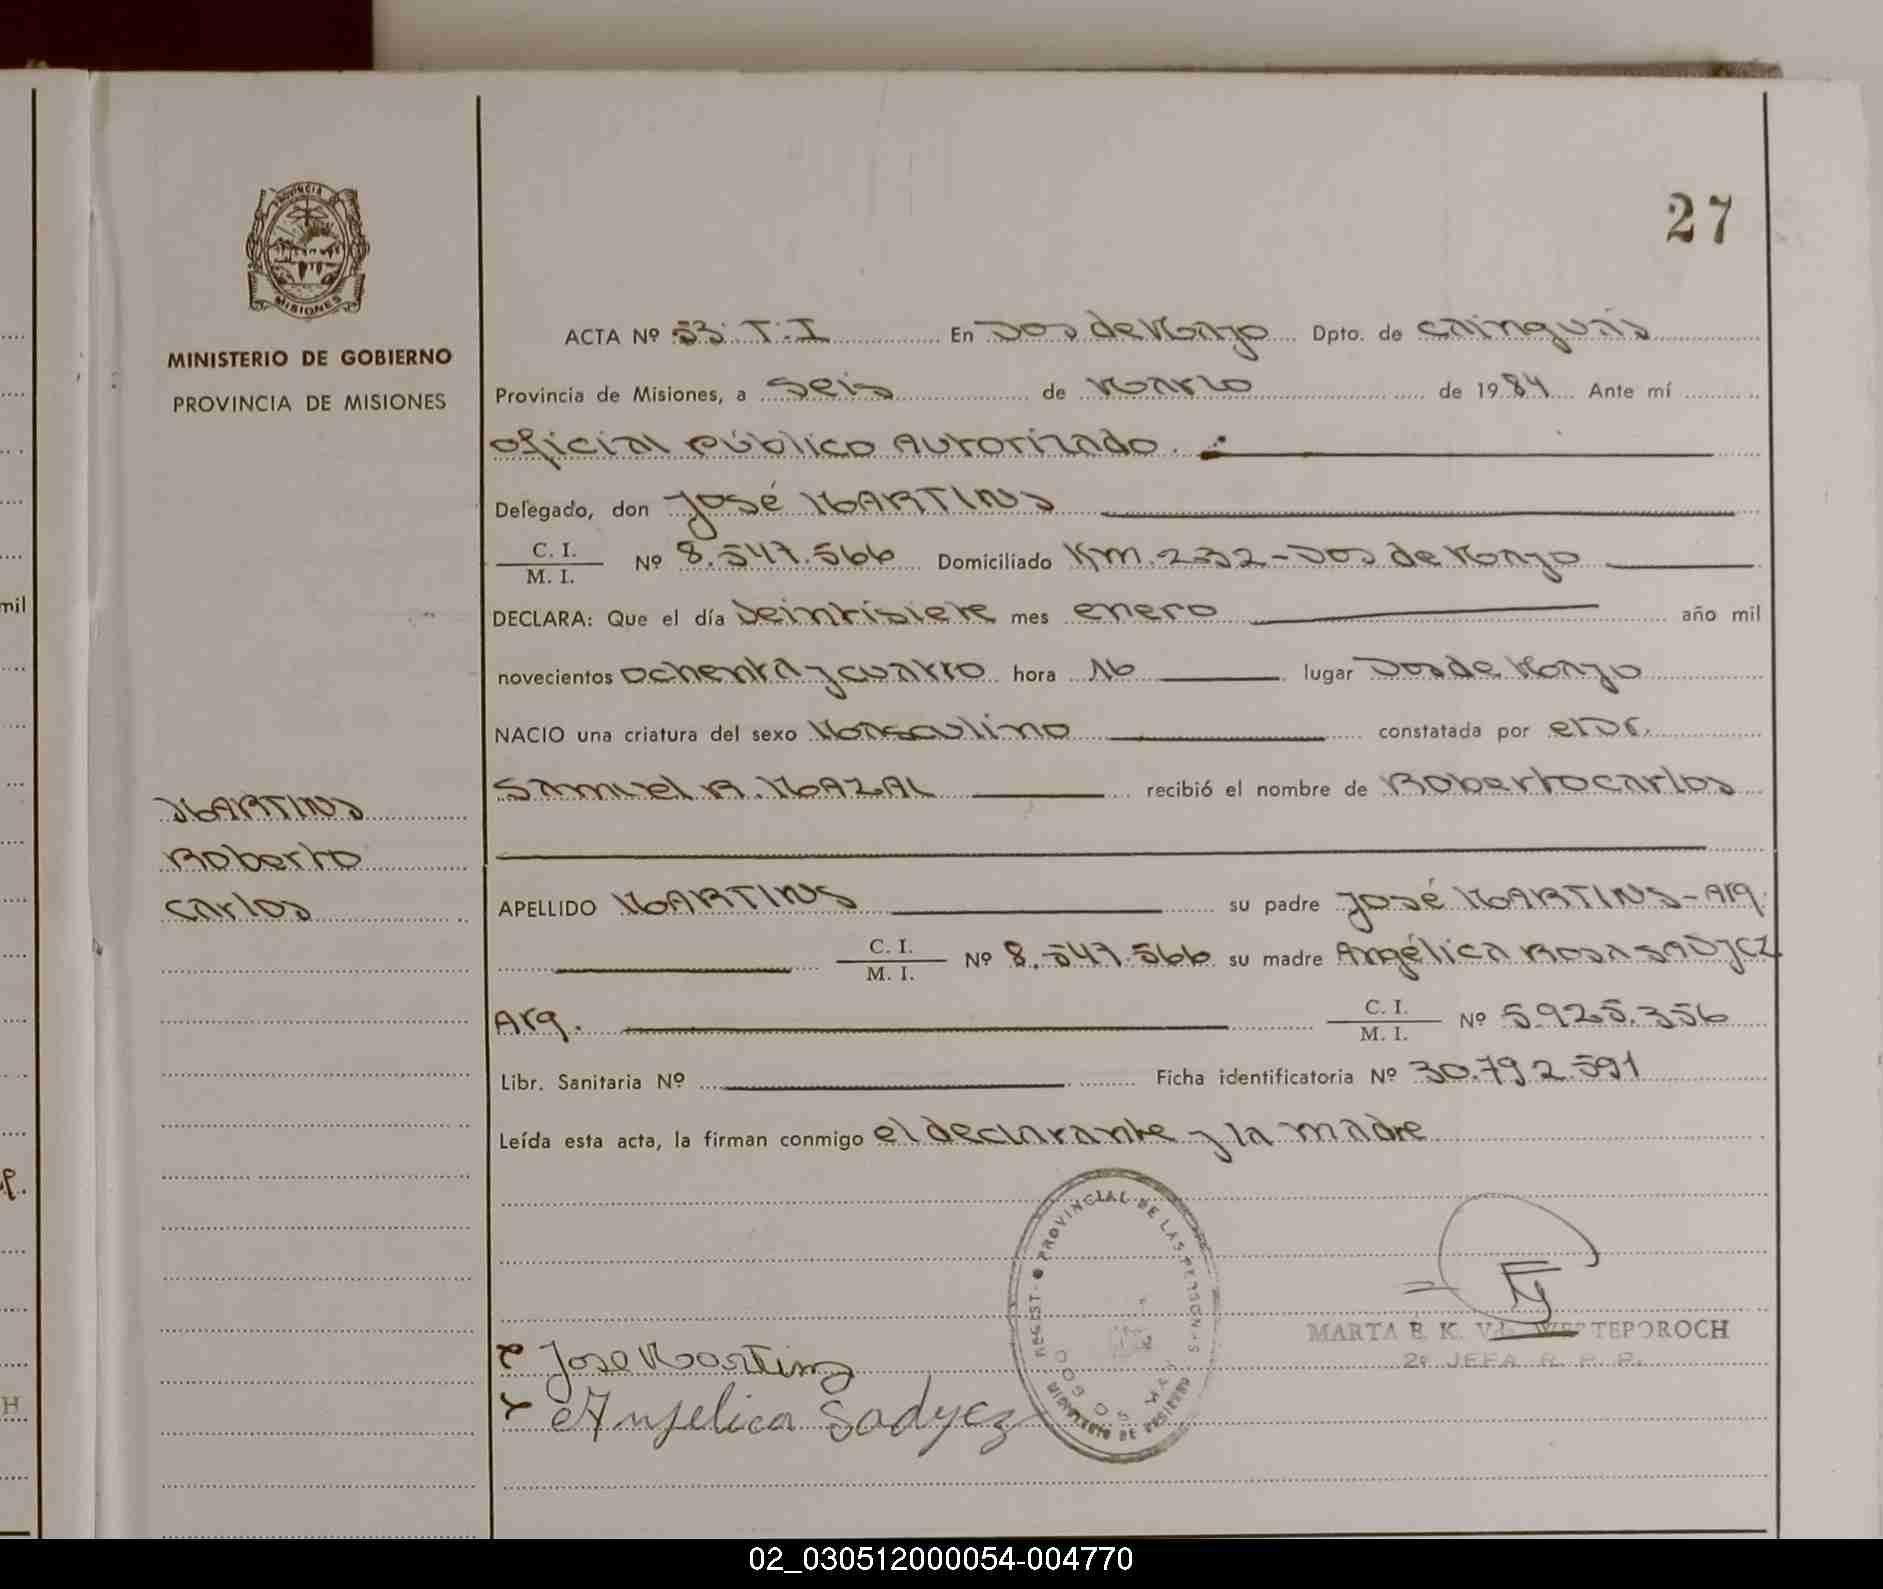 27
PROVINCIA
MISIONES
MINISTERIO DE GOBIERNO
PROVINCIA DE MISIONES
MARTINS
Roberto
Carlos
ACTA Nº 53. T. I En Dos de Mayo Dpto. de Cainguás
Provincia de Misiones, a Seis de Marzo de 1984 Ante mí
oficial público Autorizado.
Delegado, don José MARTINS
C. I. / M. I. Nº 8.547.566 Domiciliado Km. 232 - Dos de Mayo
DECLARA: Que el día Veintisiete mes enero año mil
novecientos ochenta y cuatro hora 16 lugar Dos de Mayo
NACIO una criatura del sexo Masculino constatada por el Dr.
Samuel A. MAZAL recibió el nombre de Roberto Carlos
APELLIDO MARTINS su padre José MARTINS - Arg.
C. I. / M. I. Nº 8.547.566 su madre Angélica Rosa SADYCZ
Arg. C. I. / M. I. Nº 5.925.356
Libr. Sanitaria Nº Ficha identificatoria Nº 30.792.591
Leída esta acta, la firman conmigo el declarante y la madre
PROVINCIAL DE LAS PERSONAS
MINISTERIO DE GOBIERNO
MARTA E. K. Vda. WESTEPOROCH
2º JEFA R. P. P.
Jose Martins
Anjelica Sadyez
mil
p.
H
02_030512000054-004770